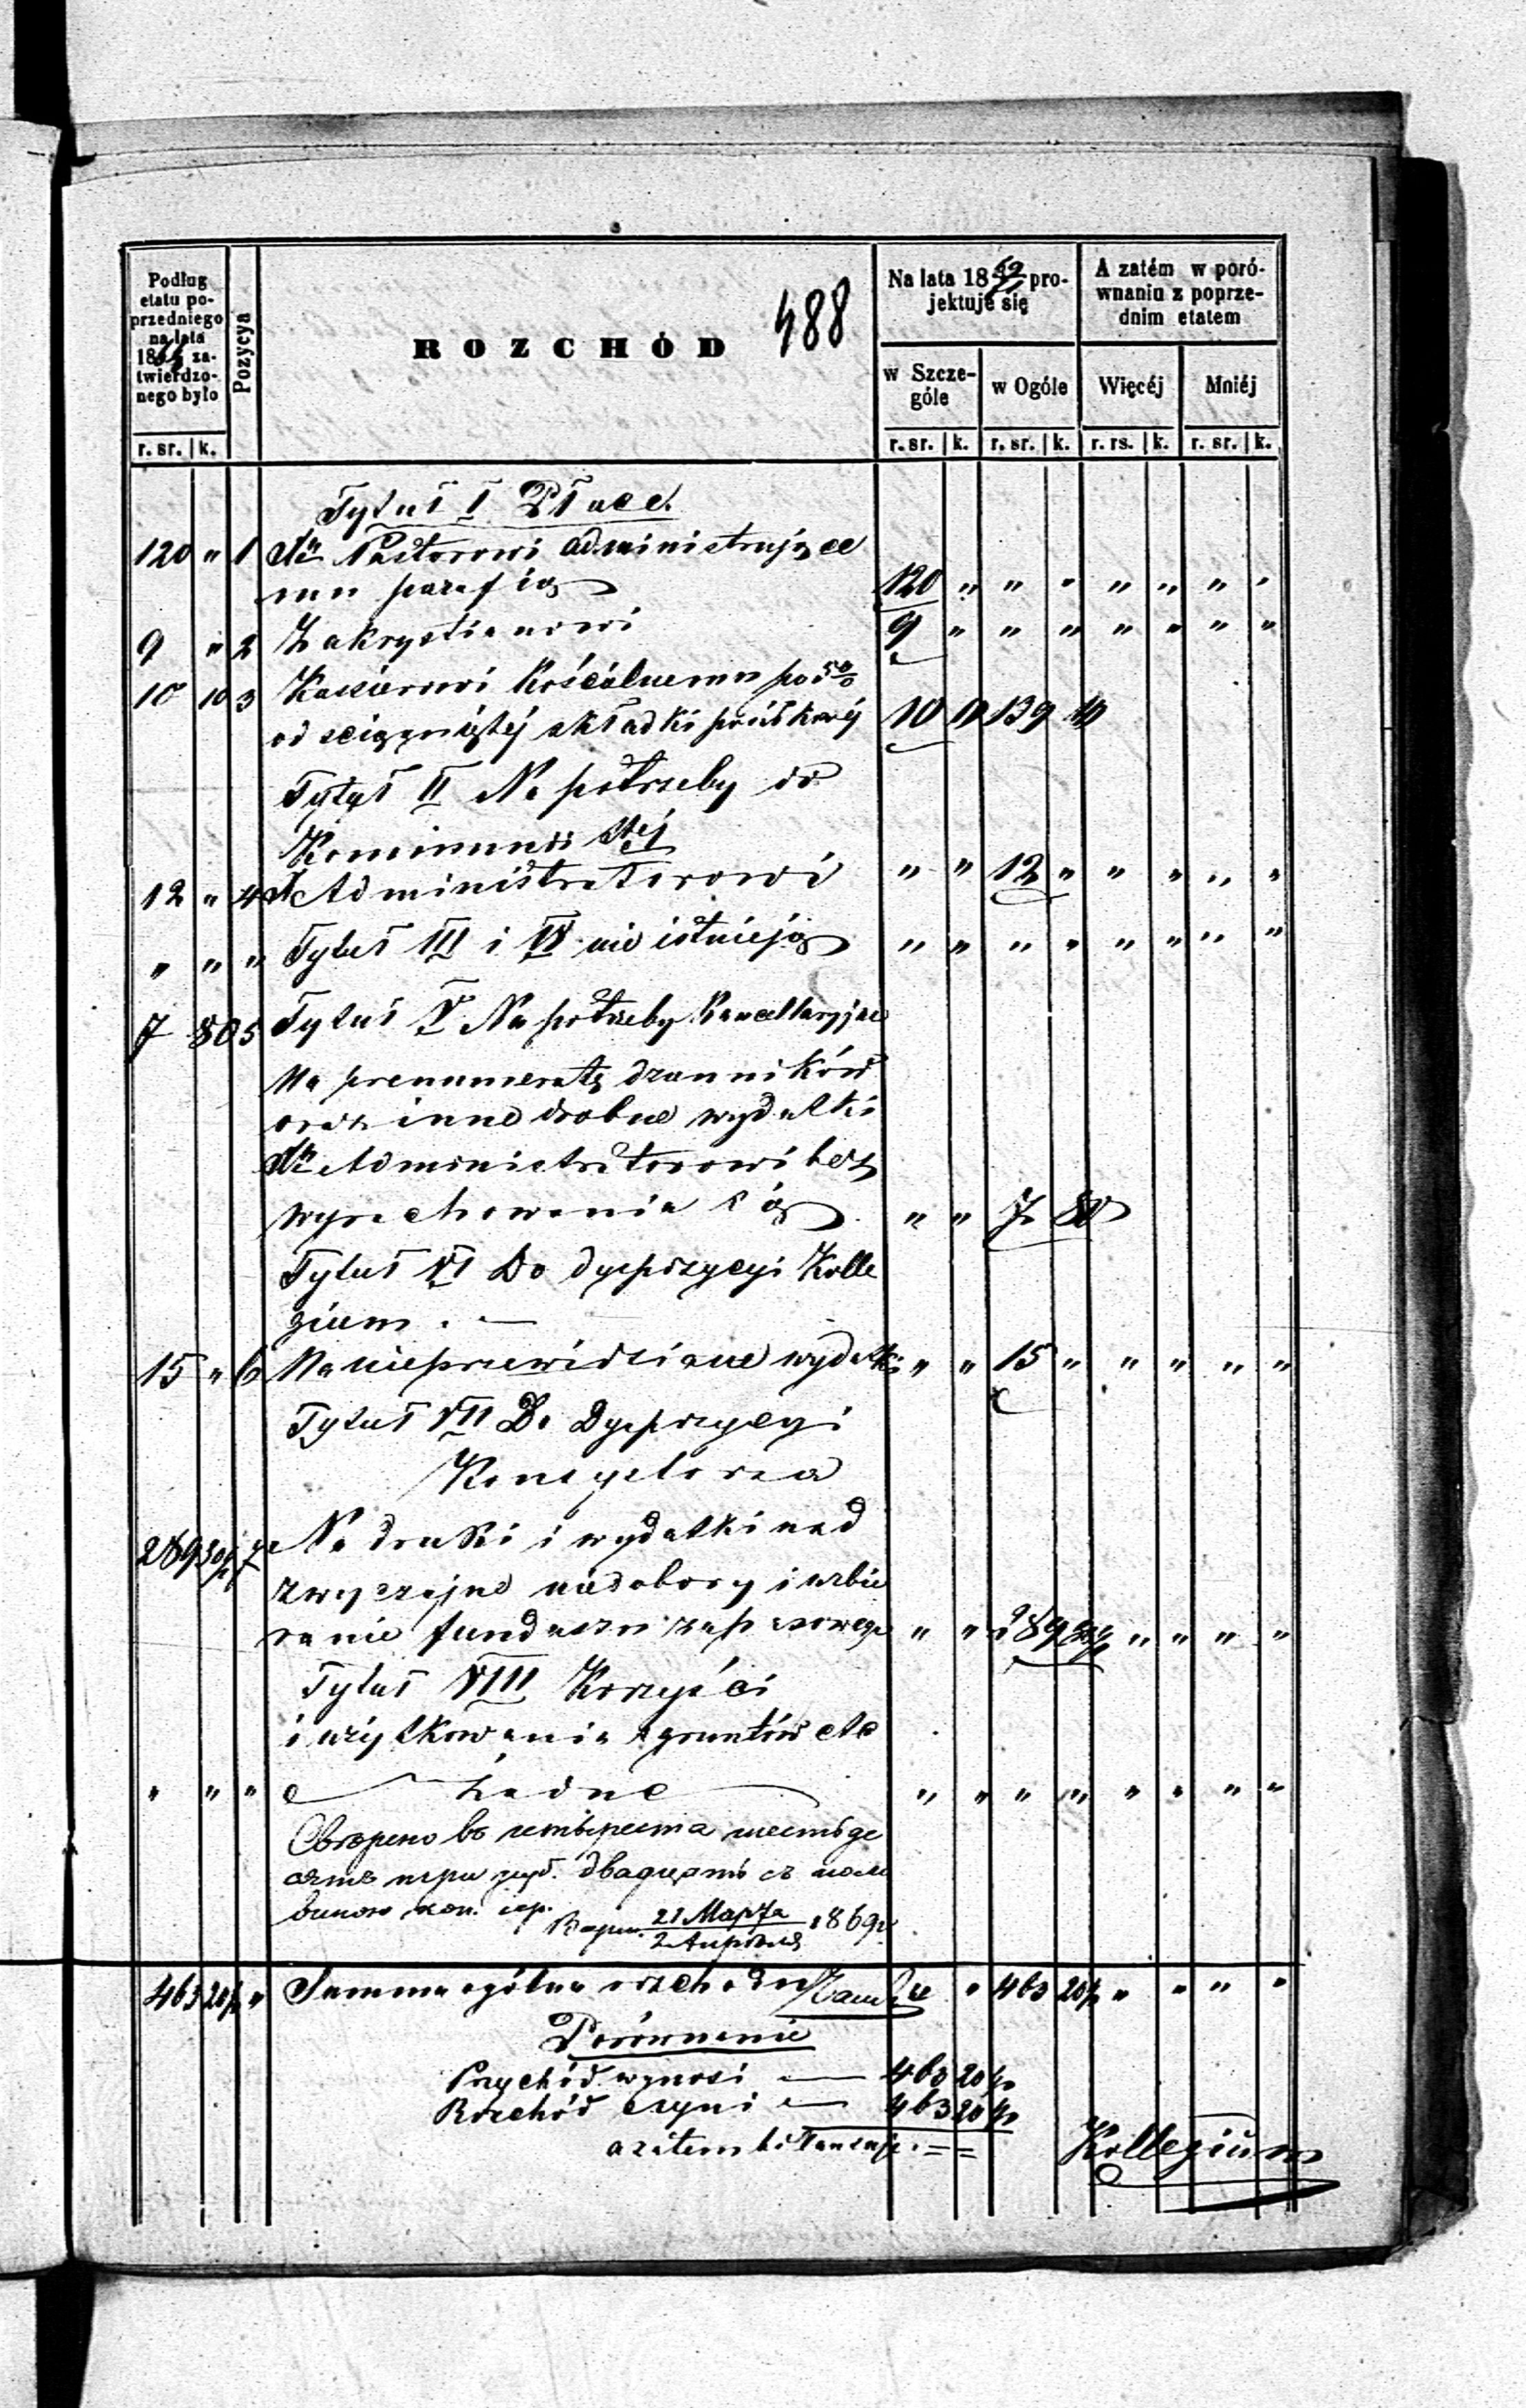 488
Podług etatu poprzedniego na lata 18 zatwierdzonego było
Pozycya
ROZCHÓD
Na lata 18 69/71 projektuje się
A zatém w porównaniu z poprzednim etatem
w Szczególe
w Ogóle
Więcéj
Mniéj
r. sr. k.
r. sr. k. r. sr. k. r. rs. k. r. sr. k.
Tytuł I Płace.
120 " 1 Pastorowi administrujące
mu parafią 120 " " " " " " "
9 " 2 Zakrystianowi 9 " " " " " " "
10 10 3 Kassierowi Kościelnemu po 5%
od ściągniętéj składki 10 10 139 10
Tytuł II Na potrzeby do
Kommunii Stéj
12 " 4 Administratorowi " " 12 " " " " "
" " " Tytuł III i IV nie istnieją " " " " " " " "
7 80 5 Tytuł V Na potrzeby Kancellaryjne
Na prenumeratę dzienników
oraz inne drobne wydatki
Administratorowi bez
wyrachowania się " " 7 80
Tytuł VI Do dyspozycyi Kolle
gium . —
15 " 6 Na nieprzewidziane wydatki " " 15 " " " " "
Tytuł VII Do Dyspozycyi
Konsystorza
289 30½ 7 Na druki i wydatki nad
zwyczajne niedobory i uzbie
ranie funduszu zapasowego " " 289 30½ " " " "
Tytuł VIII Korzyści
i użytkowania z gruntów etc
" " " żadne " " " " " " " "
Свѣрено въ четыреста шестьде
сятъ три руб. двадцать съ поло
виною коп. сер.
Варш. 21 Марта / 2 Апрѣля 1869 г.
463 20½ " Summa ogólna rozchodu " 463 20½ " " " "
Porównanie
Przychód wynosi — 463 20½
Rozchód czyni — 463 20½
a zatem bilansuje . = =
Kollegium